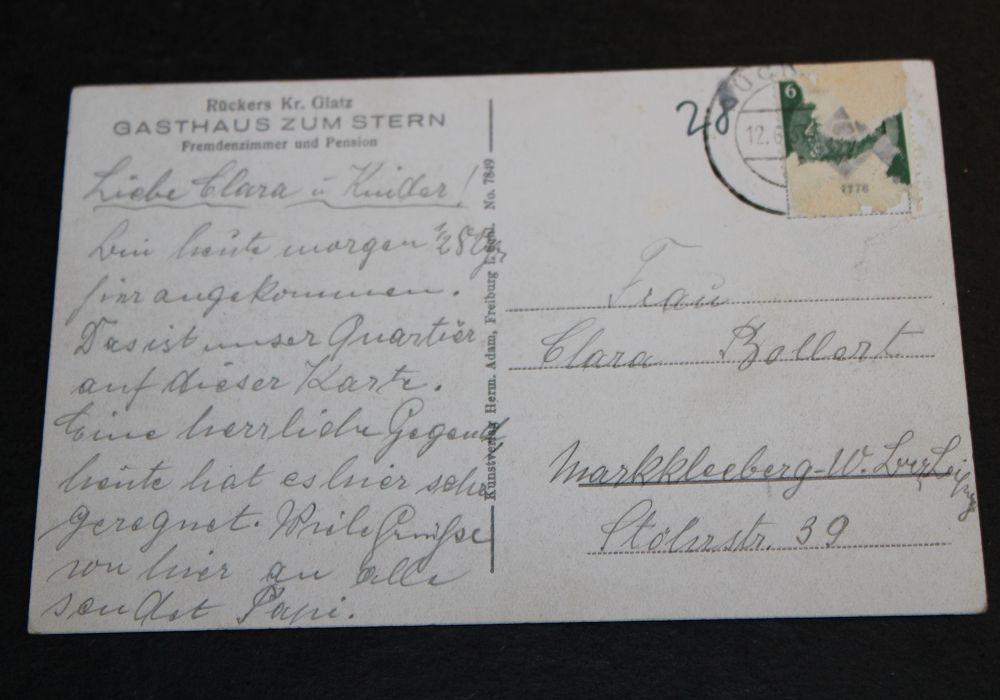 Rückers Kr. Glatz
GASTHAUS ZUM STERN
Fremdenzimmer und Pension
Liebe Clara u Kinder!
Bin heute morgen 1/2 8
hier angekommen.
Das ist unser Quartier
auf dieser Karte.
Eine herrliche Gegend
heute hat es hier sehr
geregnet. Viele Grüße
von hier an alle
sendet Papi.
Kunstverlag Herm. Adam, Freiburg i. Schl. No. 7849
28
12.6
6
1776
Frau
Clara Bollert
Markkleeberg-W. Leipzig
Stöhrstr. 39